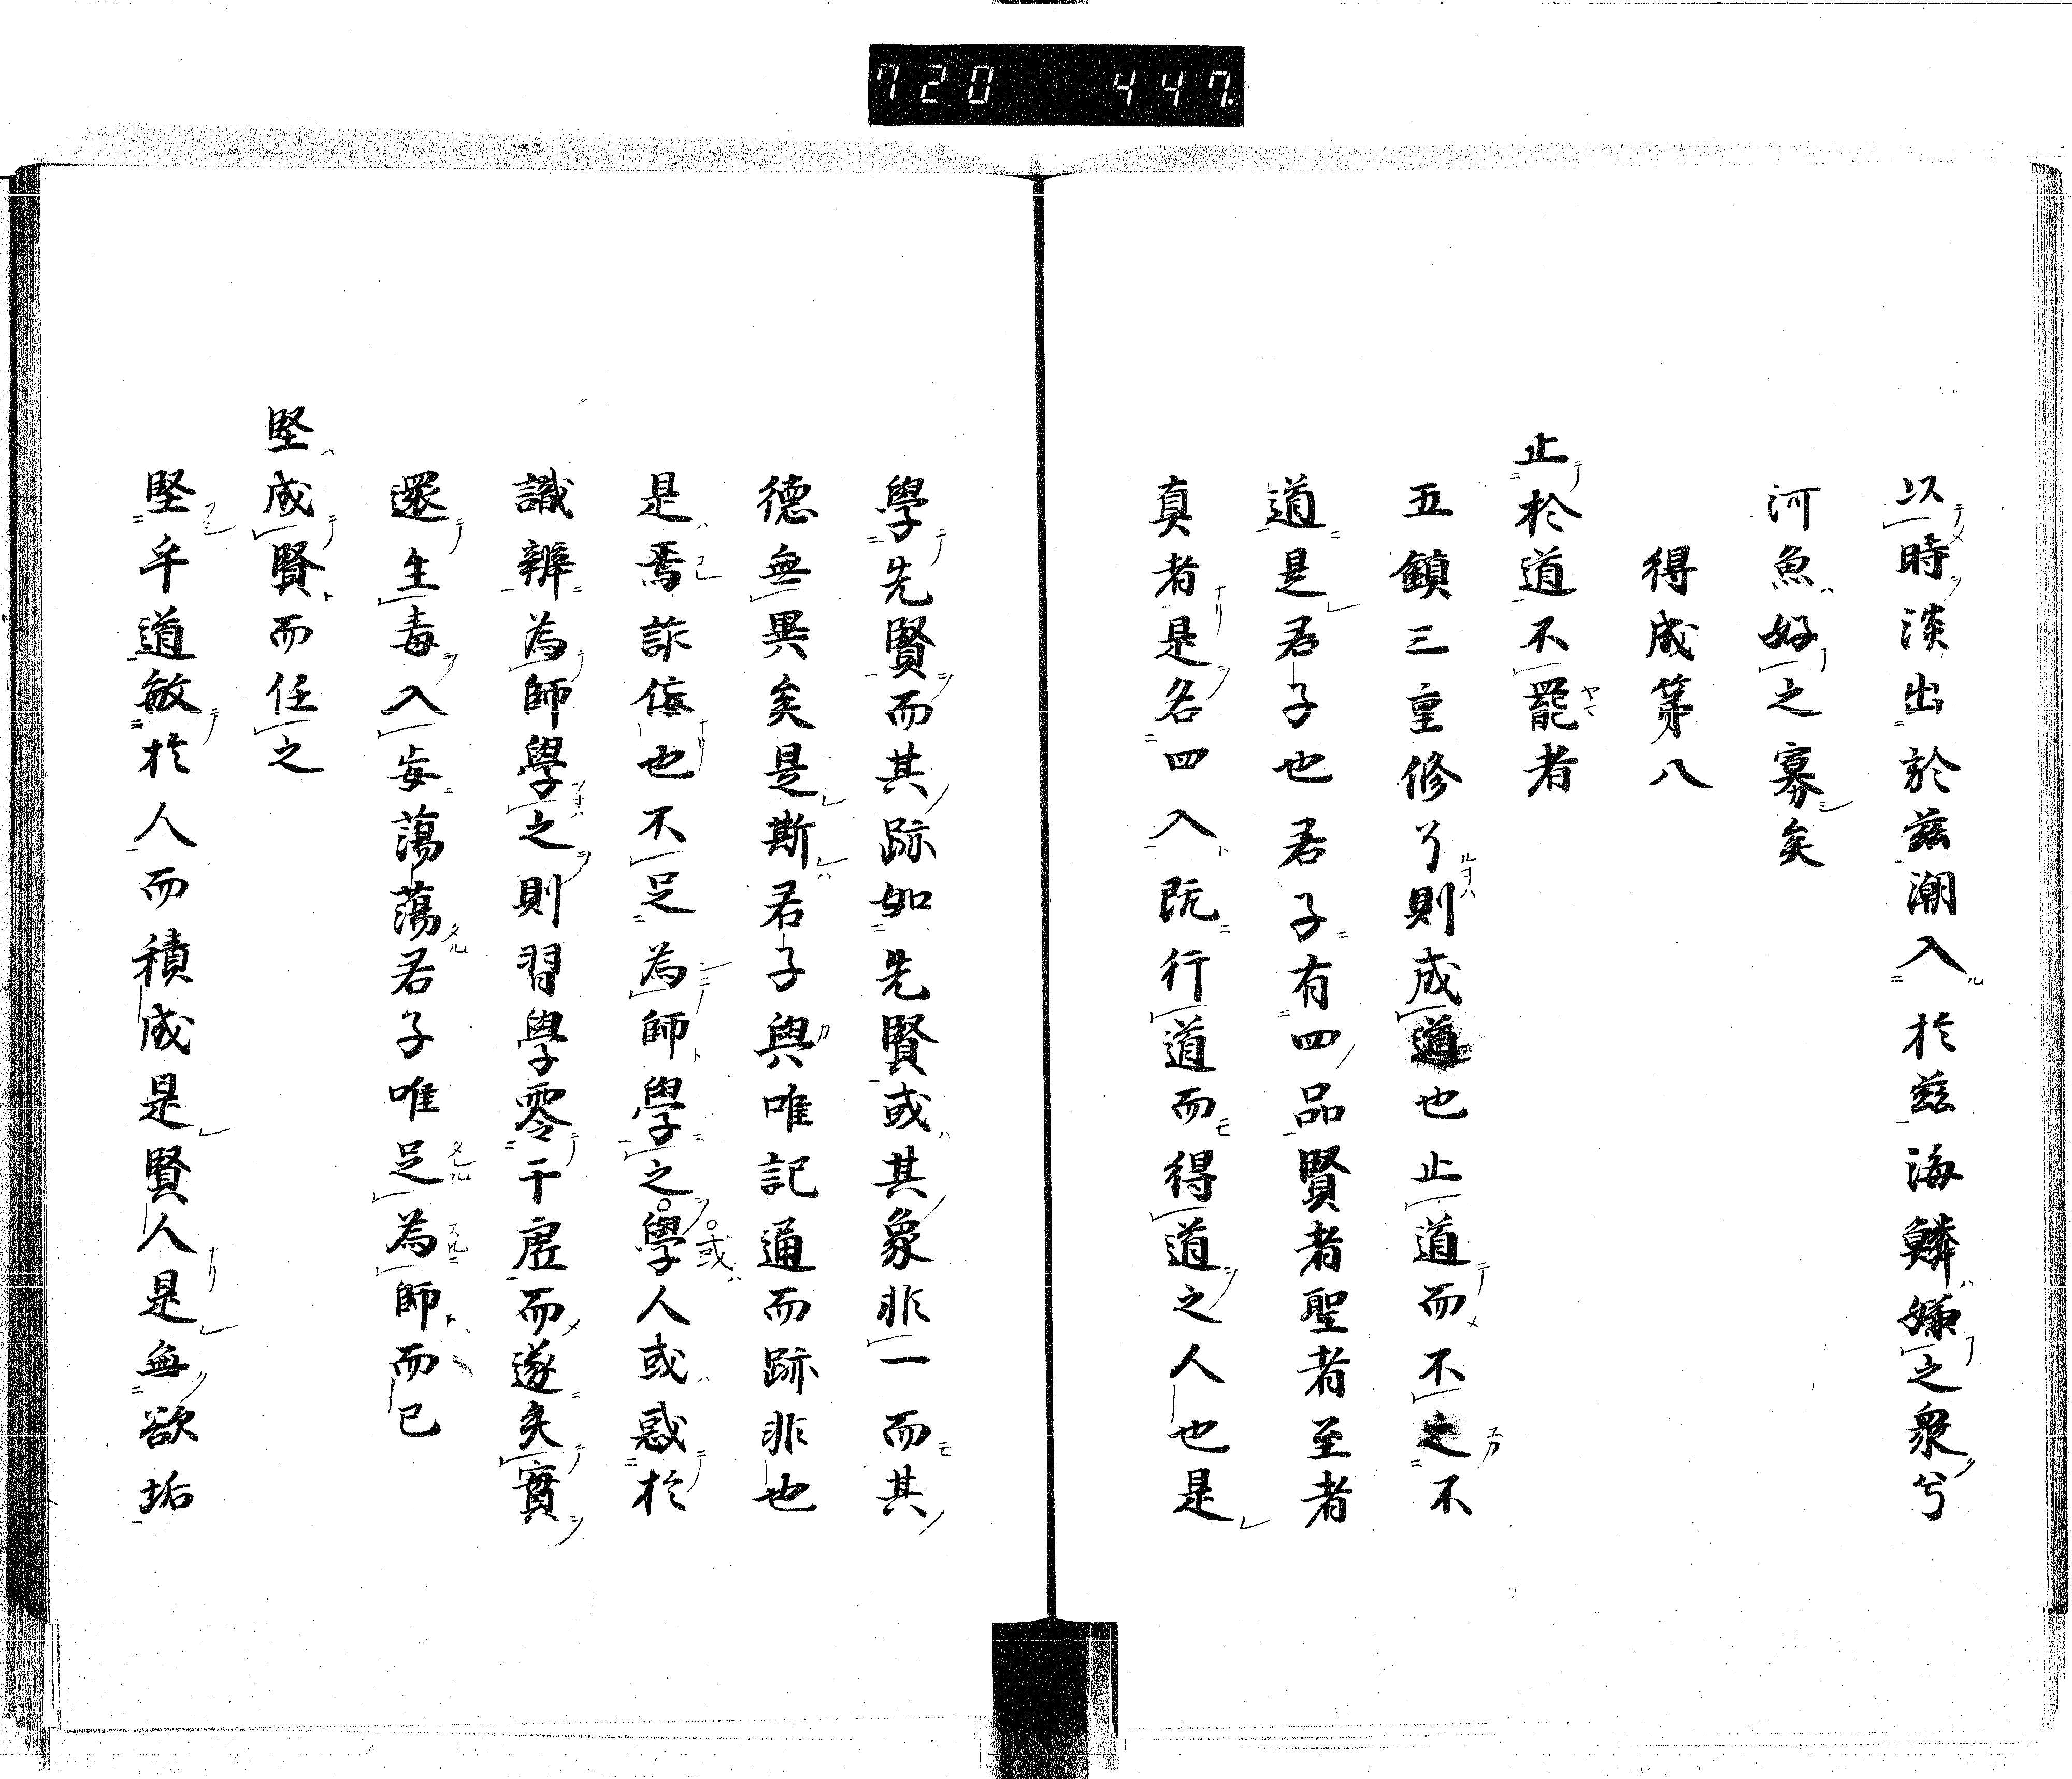 720 447
以時淡出於茲潮入於茲海鱗嫌之衆兮
河魚好之寡矣
得成第八
止於道不罷者
五鎮三重修了則成道也止道而不之不
道是君子也君子有四品賢者聖者至者
真者是名四入既行道而得道之人也是
學先賢而其跡如先賢或其象非一而其
德無異矣是斯君子與唯記通而跡非也
是焉詐偽也不足為師學之學人或惑於
或
識辨為師學之則習學零干虛而遂失實
還生毒入妄蕩蕩君子唯足為師而已
堅成賢而任之
堅乎道敏於人而積成是賢人是無欲垢